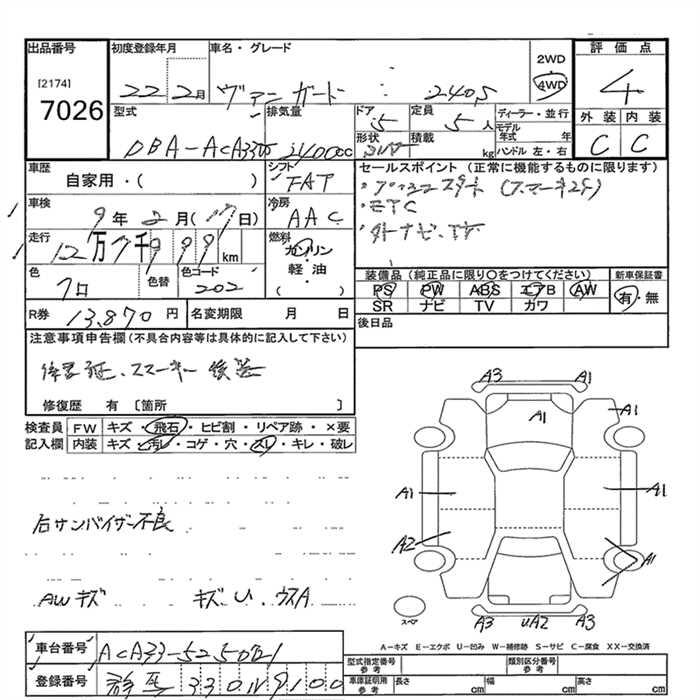 出品番号
[2174]
7026
初度登録年月
22 2月
車名・グレード
ヴァンガード : 240S
2WD
4WD
評価点
4
外装 内装
C C
型式
DBA-ACA33W
排気量
2400cc
ドア
5
定員
5人
形状
積載
kg
ディーラー・並行
モデル年式 年
ハンドル 左・右
車歴
自家用・( )
シフト
FAT
車検
9年2月(17日)
冷房
AAC
走行
12万7千 km
燃料
ガソリン
軽油
( )
色
クロ
色替
色コード
202
R券
13,870円
名変期限 月 日
セールスポイント (正常に機能するものに限ります)
・ETC
・外ナビ、TV
装備品 (純正品に限り○をつけてください)
PS PW ABS エアB AW
SR ナビ TV カワ
新車保証書
有・無
後日品
注意事項申告欄(不具合内容等は具体的に記入して下さい)
保署証、スマーキー後送
修復歴 有 〔箇所 〕
検査員記入欄
FW キズ・飛石・ヒビ割・リペア跡・×要
内装 キズ・汚レ・コゲ・穴・スレ・キレ・破レ
右サンバイザー不良
AWキズ キズ、U、ウスA
A3 A1
A1 A1
A1 A1
A2 A1
A3 UA2 A3
スペア
A-キズ E-エクボ U-凹み W-補修跡 S-サビ C-腐食 XX-交換済
車台番号
登録番号
型式指定番号 参考
類別区分番号 参考
車庫証明用 参考
長さ cm
幅 cm
高さ cm